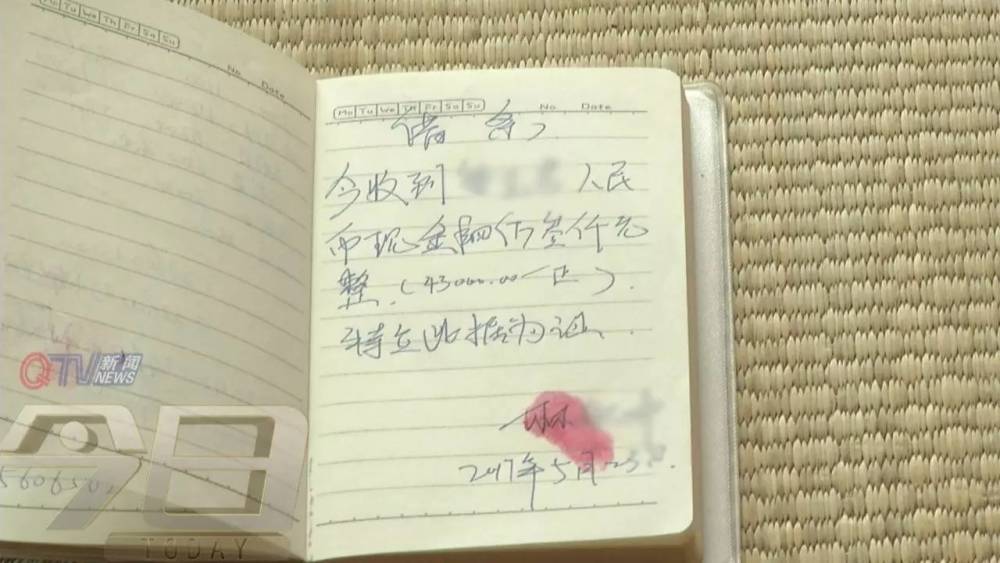 Mo Tu We Th Fr Sa Su
No Date
Mo Tu We Th Fr Sa Su No Date
借条
今收到 人民
币现金肆仟叁仟元
整.(43000.00元正).
特立此据为证.
林
2017年5月23日.
QTV新闻
NEWS
今日
TODAY